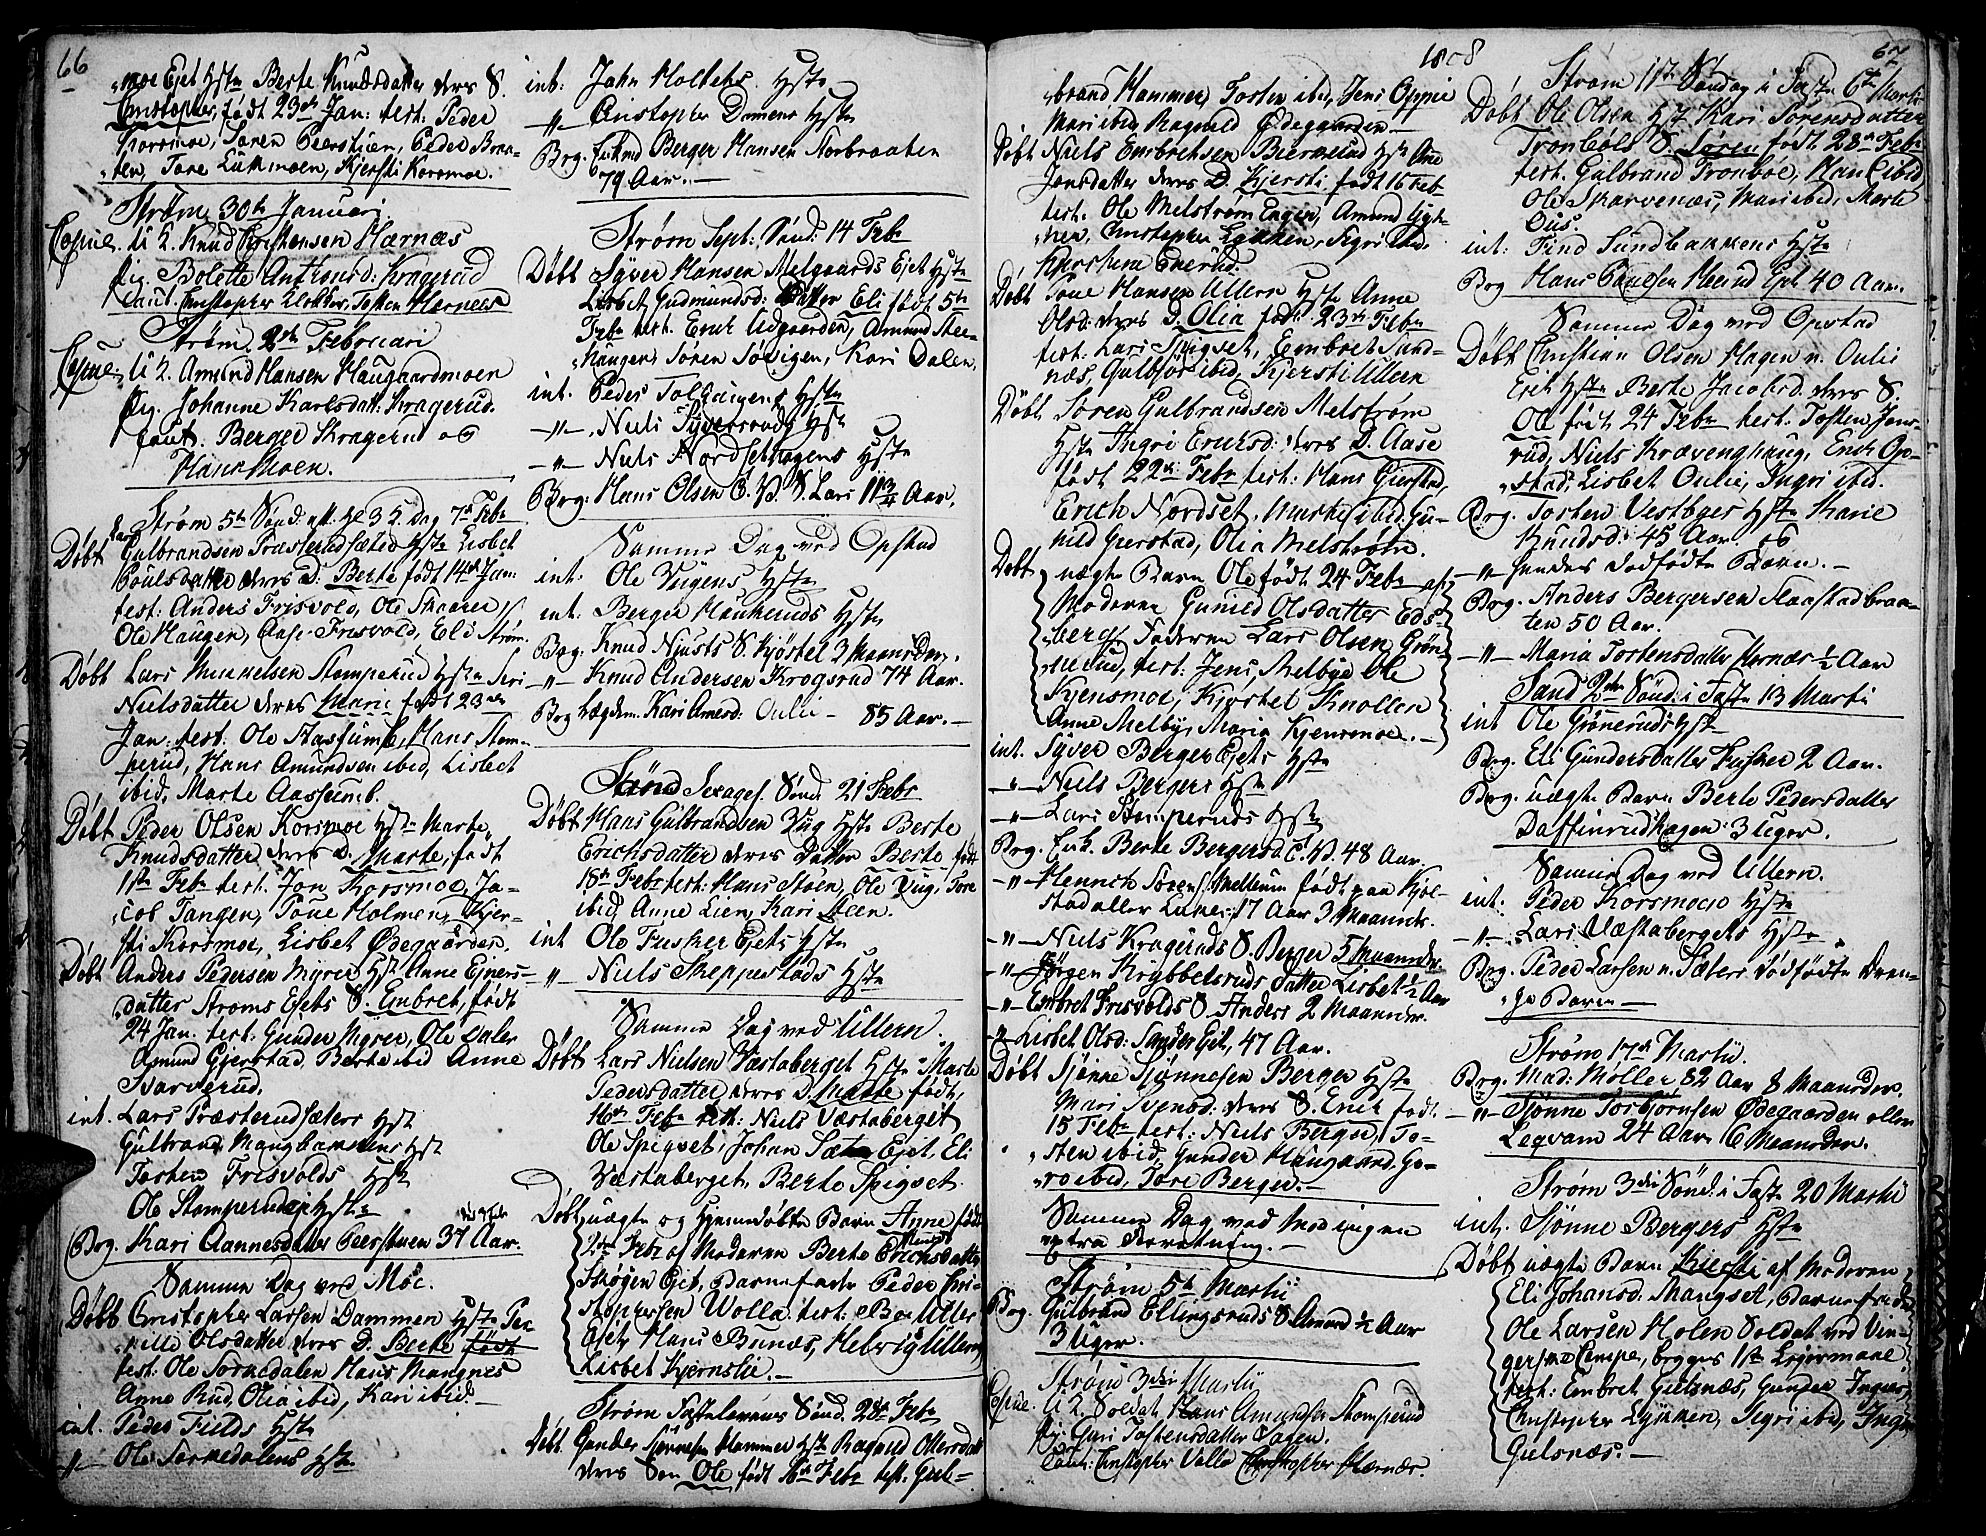 66
moe Ejet Hstr Berte Knudsdatter deres S.
Christopher, født 23de Jan: test: Peder
Korsmoe, Søren Peerstuen, Peder Braa-
ten, Tore Lükmoen, Kjersti Korsmoe.
Strøm 30te Januari
Copul. U. K. Knud Christensen Hærnæs
Pig. Bolette Antonsd: Kragerud
Caut. Christopher Klokker, Tosten Hærnæs
Strøm 2den Februari
Copul. U. K. Amund Hansen Haugaardmoen
Pig. Johanne Karlsdatt. Kragerud.
Caut. Berger Kragerud og
Hans Moen.
Strøm 5te Sønd. eft. He 3 K. Dag 7de Febr
Døbt Lars Gulbrandsen Træsterudsæter Hstr Lisbet
Poulsdatter deres D: Berte født 14de Jan:
test: Anders Frisvold, Ole Skaarer
Ole Haugen, Aase Frisvold, Eli Strøm.
Døbt Lars Mikkelsen Stomperud Hstr Siri
Nielsdatter deres Marie født 23de
Jan: test: Ole Aassumb, Hans Stom-
perud, Hans Amundsen ibid, Lisbet
ibid, Marte Aassumb.
Døbt Peder Olsen Korsmoe Hstr Marte
Knudsdatter deres D. Marte, født
1ste Febr test. Jon Korsmoe, Ja-
cob Tangen, Poue Holmen, Kjer-
sti Korsmoe, Lisbet Ødegaarden.
Døbt Anders Pedersen Myrer Hstr Anne Ejners-
datter Strøms Ejets S. Embret, født
24 Jan. test. Gunder Myrer, Ole Daler
Asmund Gjerstad, Berte ibid Anne
Narverud.
int. Lars Træsterudsæters Hstr
Gulbrand Mangbakkens Hstr
Tosten Frisvolds Hstr
Ole Stomperudejets Hstr
Brg. Kari Aannesdatter Peerstuen 37 Aar.
Samme Dag ved Moe.
Døbt Christopher Larsen Dammen Hstr Per-
nille Olsdatter deres D. Berte født
test. Ole Tornedalen Hans Mangnes
Anne Rud, Olia ibid, Kari ibid.
int. Peder Fields Hstr
" Ole Tornedalens Hstr
int: John Moltebs Hstr
" Christopher Damens Hstr
Brg. Enkmd Berger Hansen Norbraaten
79 Aar.
Strøm Sept: Sønd: 14 Febr
Døbt Syver Hansen Melgaards Ejet Hstr
Lisbet Gudmundsd: Datter Eli født 5te
Febr test. Erich Udgaarden, Amund Stee-
haugen Søren Søevigen, Kari Dalen.
int. Peder Tolgaugens Hstr
" Niels Syversruds Hstr
" Niels Nordsethagens Hstr
Brg: Hans Olsen S. Lars 11 3/4 Aar.
Samme Dag ved Opstad
int: Ole Vugens Hstr
int. Berger Haukeruds Hstr
Brg: Knud Njusts S. Kjøstel 3 Maaneder.
" Knud Andersen Krogsrud 74 Aar.
Brg Lægdem. Kari Arnesd: Oulie 85 Aar.
Sand Sexages. Sønd. 21 Febr
Døbt Hans Gulbrandsen Vug Hstr Berte
Erichsdatter deres Datter Berte født
18de Febr test: Hans Støen, Ole Vug, Tore
ibid Anne Lien, Kari Steen.
int Ole Fusker Ejets Hstr
" Niels Skeppestads Hstr
Samme Dag ved Ullern.
Døbt Lars Nielsen Væstaberget Hstr Marte
Pedersdatter deres D. Marte født
16de Febr test: Niels Væstaberget
Ole Spigset, Johan Sæter Ejet, Eli
Væstaberget, Berte Spigset.
Døbt uægte og Hjemmedøbte Barn Anne født
2den Febr af Moderen Berte Erichsdatter
Skogen Ejet, Barnefader Peder Chri-
stophersen Wolla. test: Boe Uller
Ejet, Hans Bunæs, Helvig Ullern
Lisbet Kjernslie.
Strøm Fastelavens Sønd. 28de Febr
Døbt Gunder Sjønnesen Hammer Hstr Ragnild Ottersdatt
deres Søn Ole født 16de Febr test. Gul-
1808
brand Hammer, Tosten ibid, Jens Oppie
Mari ibid, Ragnild Ødegaarden.
Døbt Niels Embretsen Bierkerud Hstr Ane
Jensdatter deres D. Kjersti født 16 Febr
test. Ole Melstrøm Engen, Amund Lyk-
ken, Christopher Lykken, Sigri ibid.
Døbt Tone Hansen Ullern Hstr Anne
Olsd: deres D. Olia født 23de Febr
test: Lars Spigset, Embret Sand-
næs, Gulbjør ibid, Kjersti Ullern
Døbt Søren Gulbrandsen Melstrøm
Hstr Ingri Erichsd: deres D. Aase
født 22de Febr test: Hans Gierstad,
Erich Nordset, Marte ibid, Gu-
nild Gierstad, Olia Melstrøm.
Døbt uægte Barn Ole født 24 Febr af
Moderen Gunild Olsdatter Eds-
berg Faderen Lars Olsen Grøn-
nerud, test: Jens Melbye Ole
Kjensmoe, Kjøstel Knollen
Anne Melby, Maria Kjensmoe.
int. Syver Berger Ejets Hstr
" Niels Bergers Hstr
" Lars Stomperuds Hstr
Brg. Enk. Berte Bergersd. 48 Aar.
" Henrich Sørens: Mellum født paa Kjøl-
stad eller Lunder 17 Aar 3 Maaneder.
" Niels Krageruds S. Berger 5 Maaneder
" Jørgen Krybbelsruds Datter Lisbet 1/2 Aar
" Embret Frisvolds S. Anders 2 Maaneder.
" Lisbet Olsd: Sander Ejet, 47 Aar.
Døbt Sjønne Sjønnesen Berger Hstr
Mari Svensd: deres S. Erich født
15 Febr test: Niels Berger, To-
sten ibid, Gunder Haugaard, Go-
ro ibid, Tore Berger.
Samme Dag ved Modingen
extra Forretning.
Strøm 5te Martii
Brg. Gulbrand Ellingsruds S. Amund 1/2 Aar
3 Uger.
Strøm 3die Martii
Copul. U. K. Soldat Hans Amundsen Stomperud
Pig: Guri Tostensdatter Vagen.
Caut: Christopher Volle Christopher Hærnæs.
67
Strøm 11te Søndag i Faste 6te Martii
Døbt Ole Olsen Hstr Kari Sørensdatter
Tronbøls S. Søren født 28de Febr
test. Gulbrand Tronbøe, Hans ibid
Ole Skarvenæs, Mari ibid, Marte
Ous.
int: Find Sundbakkens Hstr
Brg Hans Poulsen Heerud Ejet 40 Aar.
Samme Dag ved Opstad
Døbt Christian Olsen Hagen u. Oulie
Ejet Hstr Berte Jacobsd. deres S.
Ole født 24 Febr test. Tosten Jons-
rud, Niels Kræveng haug, Erich Op-
stad, Lisbet Oulie, Ingri ibid.
Brg. Tosten Vestbyes Hstr Marie
Knudsd: 45 Aar og
" hendes dødfødte Barn.
Brg. Anders Bergersen Haastadbraa-
ten 50 Aar.
" Maria Tostensdatter Hornæs 1/2 Aar
Sand 2den Sønd: i Faste 13 Martii
int Ole Grøneruds Hstr
Brg. Eli Gundersdatter Fusker 2 Aar.
Brg. uægte Barn Berte Pedersdatter
Daffinrudhagen 3 Uger.
Samme Dag ved Ullern.
int: Peder Korsmoes Hstr
" Lars Væstabergets Hstr
Brg. Peder Larsen n. Sæters dødfødte Dren-
ge Barn
Strøm 17de Martii.
Brg. Mad: Møller 82 Aar 8 Maaneder.
" Sjønne Torbjørnsen Ødegaarden eller
Legvam 24 Aar 6 Maaneder.
Strøm 3die Sønd: i Faste 20 Martii
int. Sjønne Bergers Hstr
Døbt uægte Barn Kiersti af Moderen
Eli Johansd: Mangset, Barnefader
Ole Larsen Holen Soldat ved Vin-
gerske Compe, begges 1ste Lejermaal
test: Embret Gulsnæs, Gunder Ingvers
Christopher Lykken, Sigri ibid, Inge
Gulsnæs.